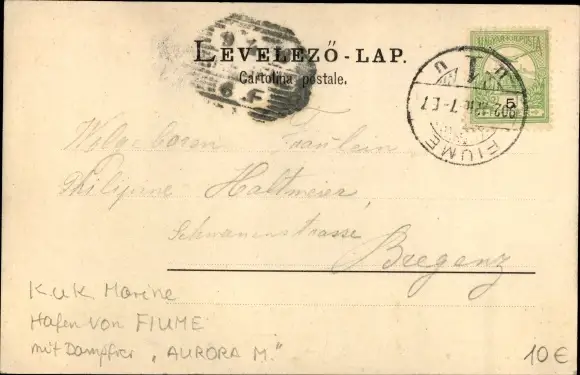 LEVELEZŐ-LAP.
Cartolina postale.
MAGYAR KIR. POSTA
5
FIUME
Wolgeboren Fräulein
Philipine Haltmeier,
Schwanenstrasse
Bregenz
K.u.K Marine
Hafen von FIUME
mit Dampfer "AURORA M."
10€